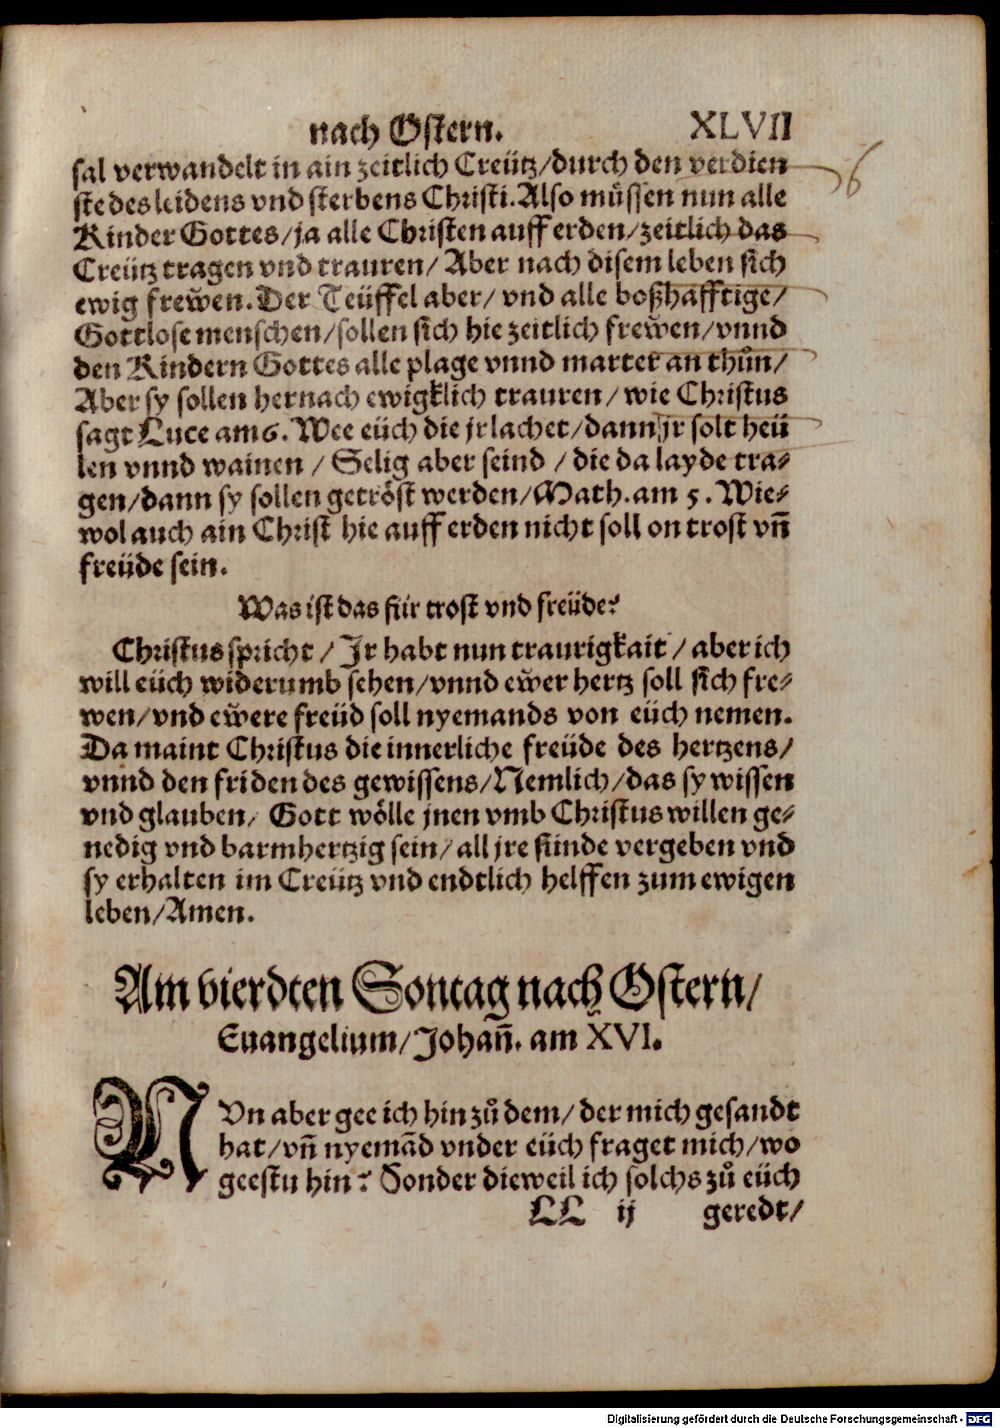 nach Ostern. XLVII
sal verwandelt in ain zeitlich Creütz/durch den verdien
ste des leidens vnd sterbens Christi. Also müssen nun alle
Kinder Gottes/ja alle Christen auff erden/zeitlich das
Creütz tragen vnd trauren/ Aber nach disem leben sich
ewig frewen. Der Teüffel aber/ vnd alle boßhafftige/
Gottlose menschen/sollen sich hie zeitlich frewen/vnnd
den Kindern Gottes alle plage vnnd marter an thůn/
Aber sy sollen hernach ewigklich trauren/ wie Christus
sagt Luce am 6. Wee eüch die jr lachet/dann jr solt heü
len vnnd wainen / Selig aber seind / die da layde tra⸗
gen/dann sy sollen getröst werden/Math. am 5. Wie⸗
wol auch ain Christ hie auff erden nicht soll on trost vñ
freüde sein.
Was ist das für trost vnd freüde?
Christus spricht / Jr habt nun traurigkait / aber ich
will eüch widerumb sehen/vnnd ewer hertz soll sich fre⸗
wen/vnd ewere freüd soll nyemands von eüch nemen.
Da maint Christus die innerliche freüde des hertzens/
vnnd den friden des gewissens/Nemlich/das sy wissen
vnd glauben/ Gott wölle jnen vmb Christus willen ge⸗
nedig vnd barmhertzig sein/all jre sünde vergeben vnd
sy erhalten im Creütz vnd endtlich helffen zum ewigen
leben/Amen.
Am vierdten Sontag nach Ostern/
Euangelium/Johañ. am XVI.
NVn aber gee ich hin zů dem/ der mich gesandt
hat/vñ nyemãd vnder eüch fraget mich/wo
geestu hin? Sonder dieweil ich solchs zů eüch
LL ij geredt/
6
Digitalisierung gefördert durch die Deutsche Forschungsgemeinschaft - DFG